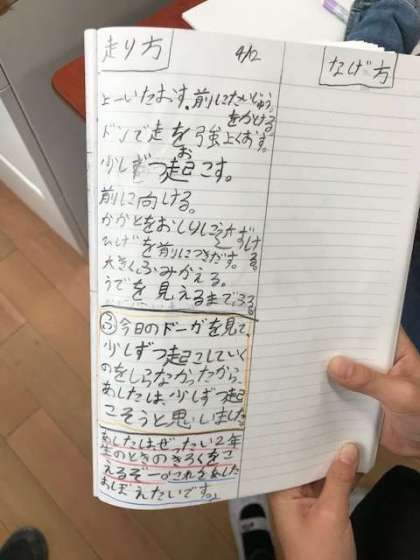 走り方
4/12
なげ方
よーいたおす。前にたいじゅう
をかける
ドンで走を強よくおす。
少しずつ起こす。
お
前に向ける。
かかとをおしりに
ひざを前につきだす。
大きくふみかえる。
うでを見えるまでふる
ふ 今日のドーガを見て、
少しずつ起こしていく
のをしらなかったから、
あしたは、少しずつ起
こそうと思いました。
あしたはぜったい2年
生のときのきろくをこ
えるぞー。これをあした
おぼえたいです。